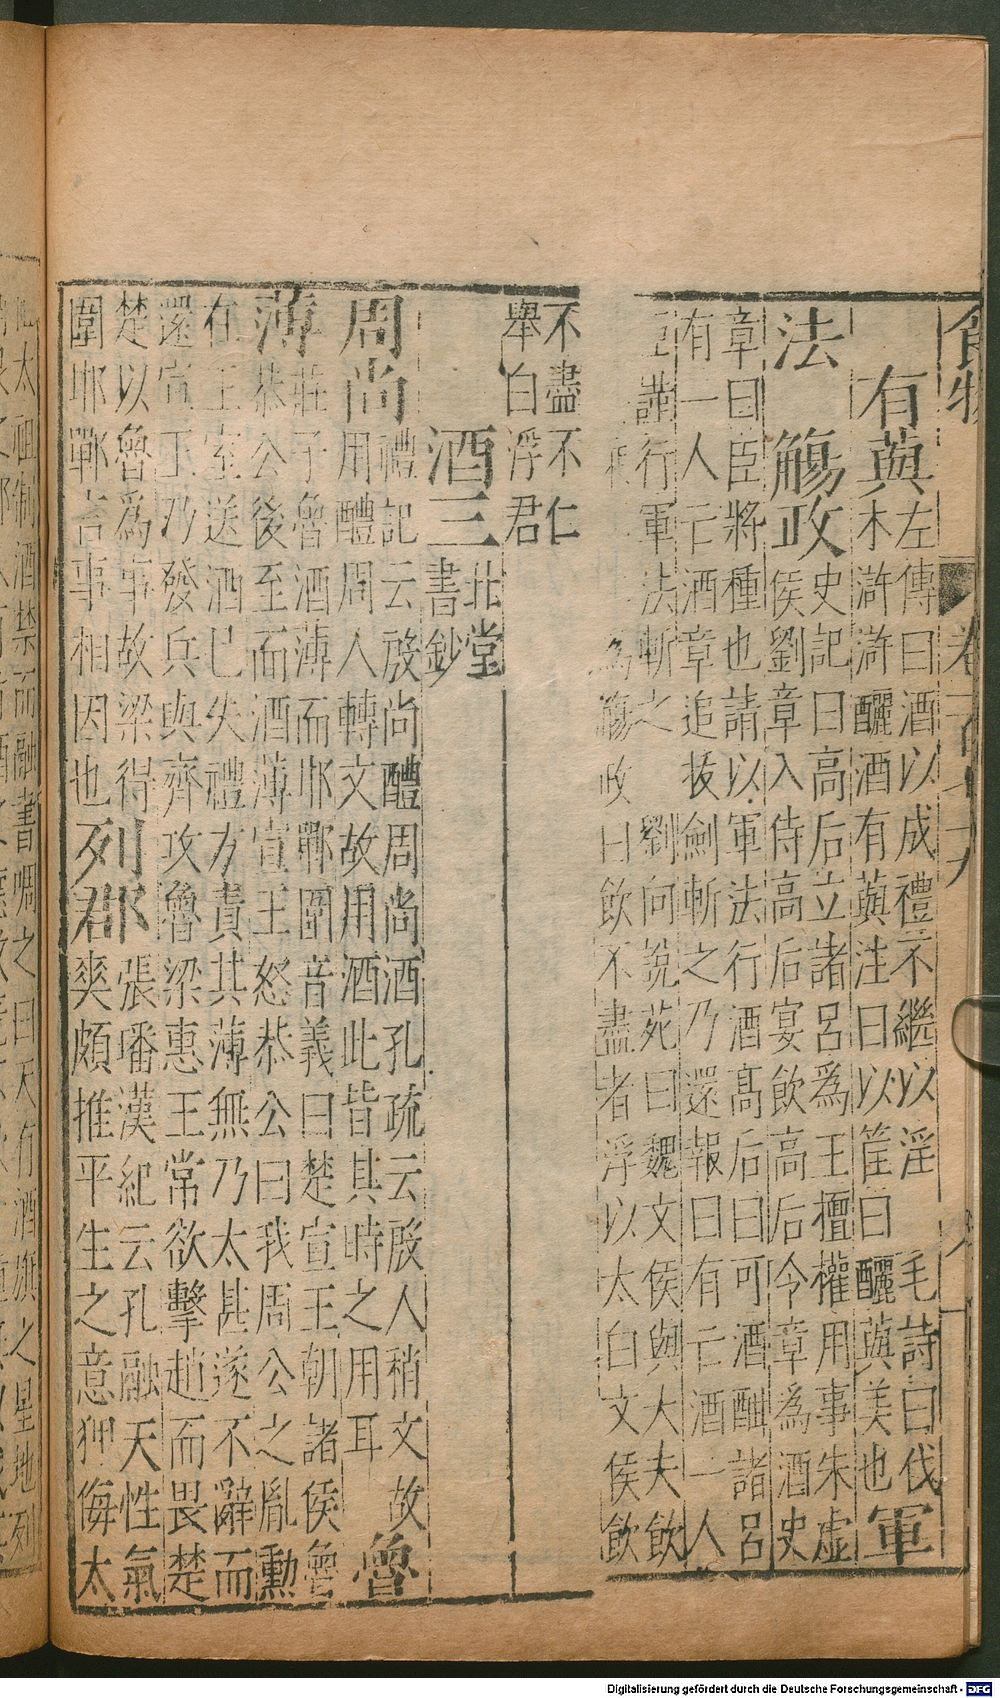 食物
有藇
左傳曰酒以成禮不繼以淫 毛詩曰伐
木滸滸釃酒有藇注曰以筐曰釃藇美也
軍
法 觴政
史記曰高后立諸呂為王擅權用事朱虛
侯劉章入侍高后宴飲高后令章為酒史
章曰臣將種也請以軍法行酒高后曰可酒酣諸呂
有一人亡酒章追拔劍斬之乃還報曰有亡酒一人
臣謹行軍法斬之 劉向說苑曰魏文侯與大夫飲
為觴政曰飲不盡者浮以太白文侯飲
不盡不仁
舉白浮君
酒三
北堂
書鈔
周尚
禮記云殷尚醴周尚酒孔疏云殷人稍文故
用醴周人轉文故用酒此皆其時之用耳
魯
薄
莊子魯酒薄而邯鄲圍音義曰楚宣王朝諸侯魯
恭公後至而酒薄宣王怒恭公曰我周公之胤勳
在王室送酒已失禮方責其薄無乃太甚遂不辭而
還宣王乃發兵與齊攻魯梁惠王常欲擊趙而畏楚
楚以魯為事故梁得
圍邯鄲言事相因也
列郡
張璠漢紀云孔融天性氣
爽頗推平生之意狎侮太
太祖制酒禁而融書啁之曰天有酒旗之星地列
Digitalisierung gefördert durch die Deutsche Forschungsgemeinschaft - DFG